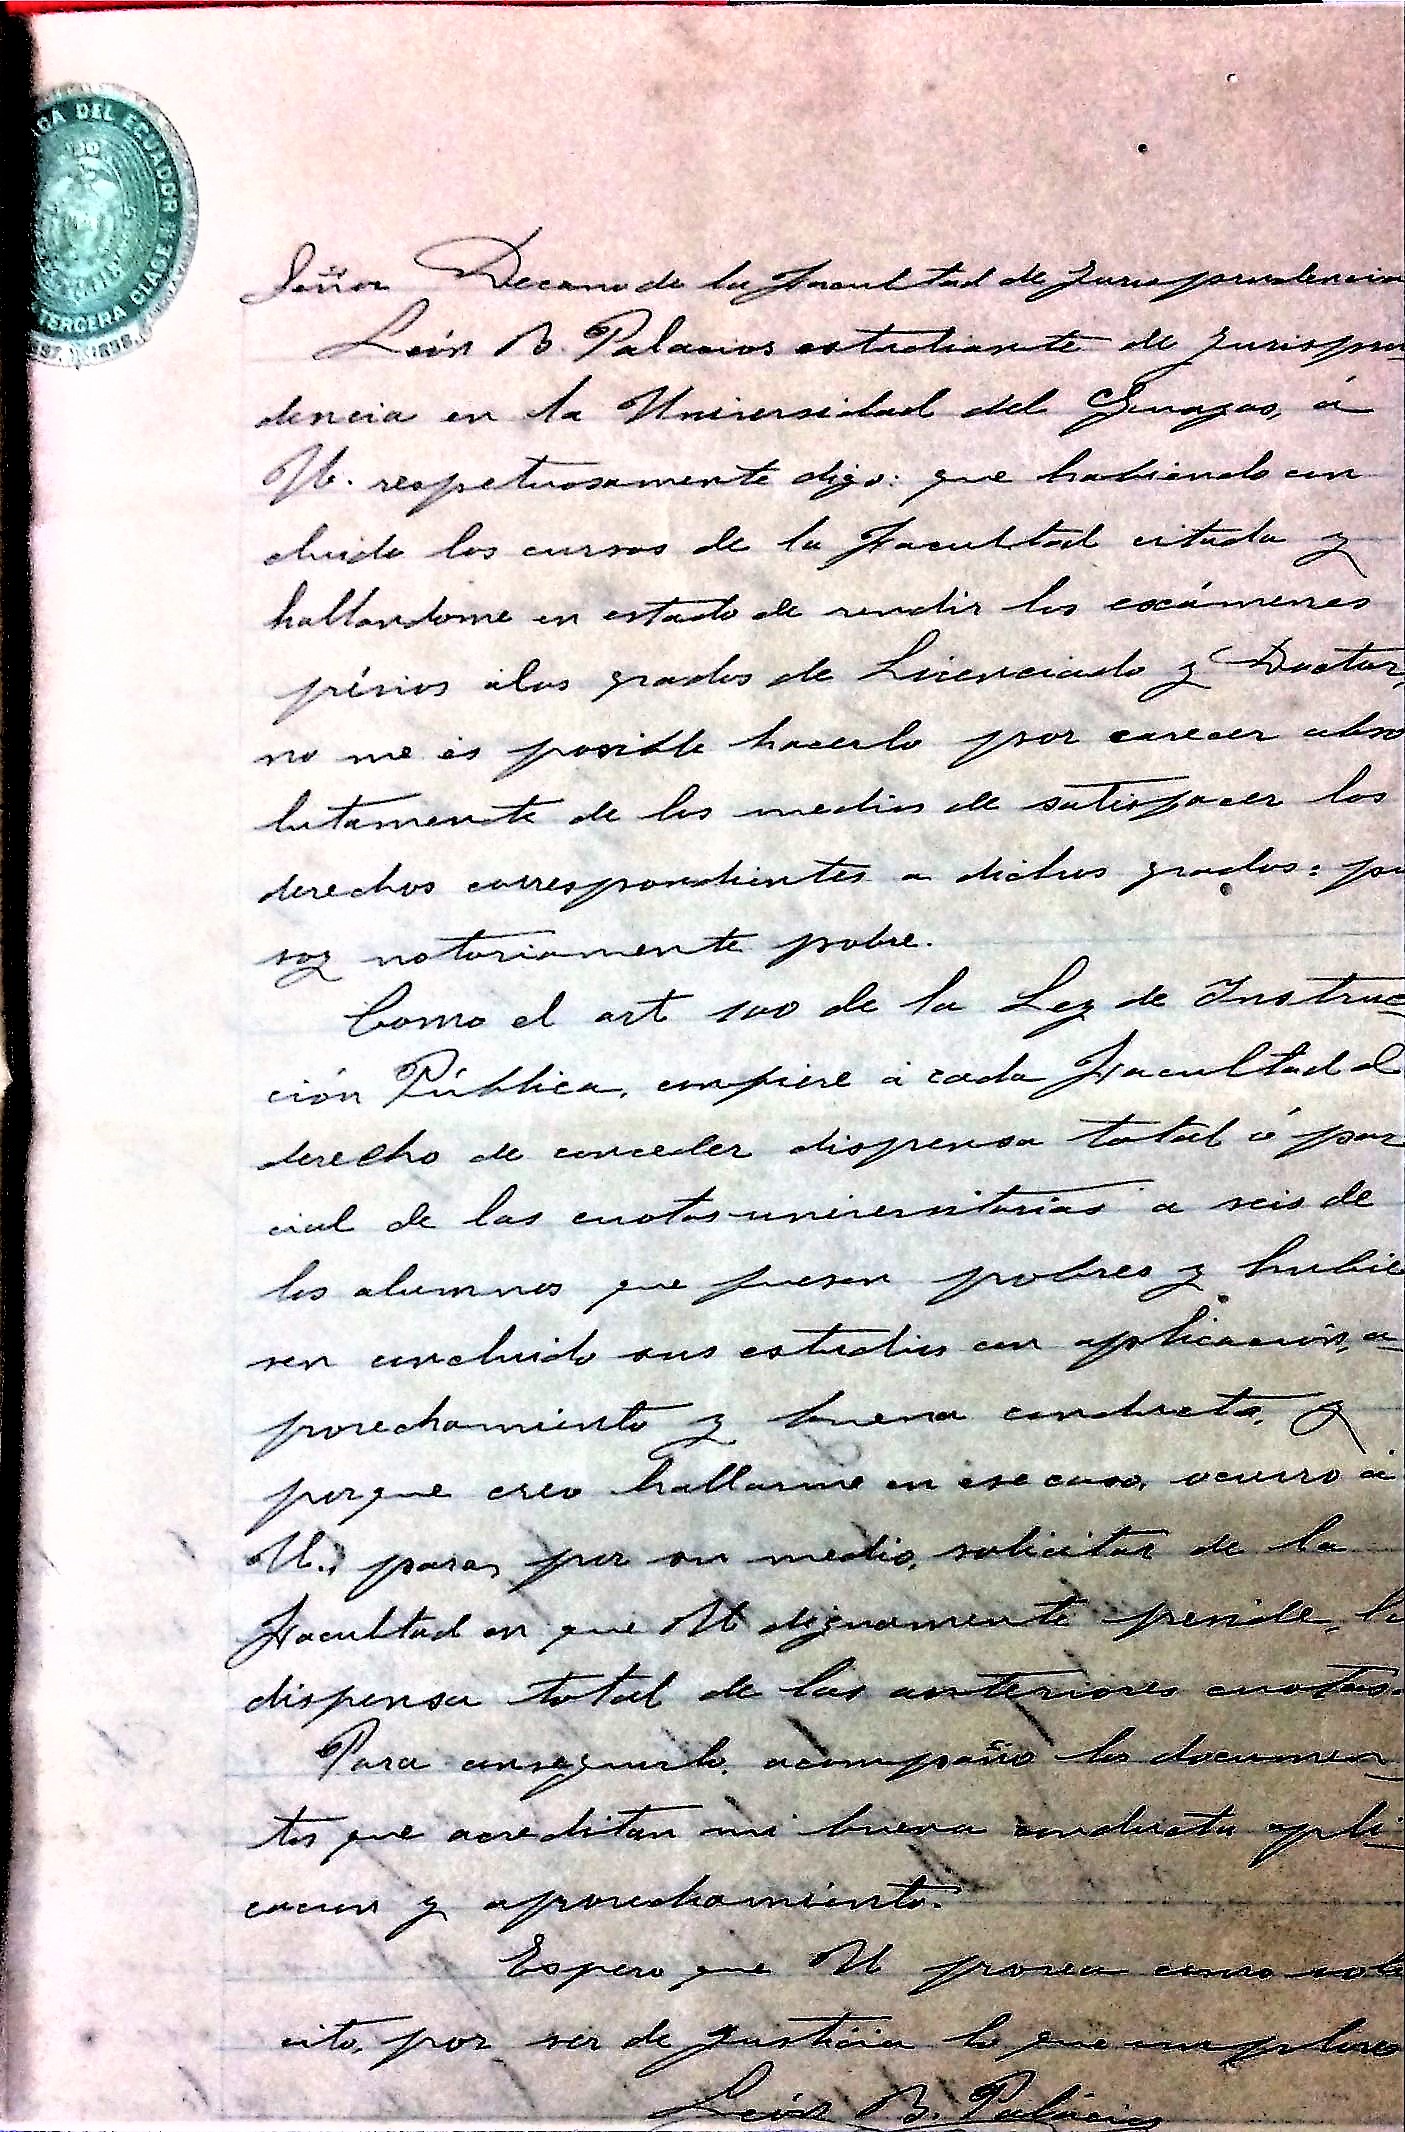 CA DEL ECUADOR
TERCERA CLASE
Señor Decano de la Facultad de Jurisprudencia
León B. Palacios estudiante de Jurispru-
dencia en la Universidad del Guayas, á
U. respetuosamente digo: que habiendo con
cluido los cursos de la Facultad citada y
hallandome en estado de rendir los exámenes
prévios alos grados de Licenciado y Doctor,
no me es posible hacerlo por carecer abso
lutamente de los medios de satisfacer los
derechos correspondientes a dichos grados: pu
soy notoriamente pobre.
Como el art 100 de la Ley de Instruc-
ción Pública, confiere á cada Facultad el
derecho de conceder dispensa total ó par
cial de las cuotas universitarias a seis de
los alumnos que fuesen pobres y hubie
sen concluido sus estudios con aplicación, a-
provechamiento y buena conducta, y
porque creo hallarme en ese caso, ocurro á
U., para, por su medio, solicitar de la
Facultad en que U dignamente preside, la
dispensa total de las anteriores cuotas.
Para conseguirlo, acompaño los documen-
tos que acreditan mi buena conducta apli-
cacion y aprovechamiento.
Espero que U provea como soli
cito, por ser de justicia lo que imploro
León B. Palacios